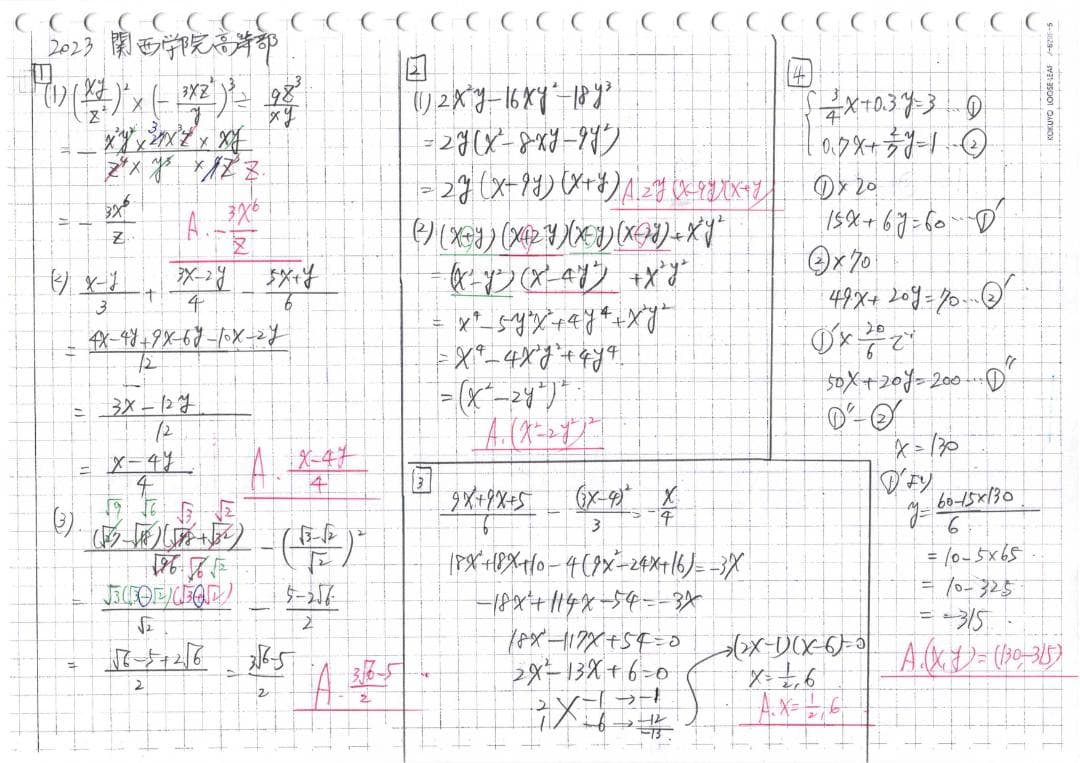 2023 関西学院高等部
1
(1) (xy/z²)² × (-3xz²/y)³ ÷ 9z³/xy
= - x²y² × 27x³z⁶ × xy / z⁴ × y³ × 9z³
= - 3x⁶/z
A. -3x⁶/z
(2) x-y/3 + 3x-2y/4 - 5x+y/6
= 4x-4y+9x-6y-10x-2y/12
= 3x-12y/12
= x-4y/4
A. x-4y/4
√9 √6 √3 √2
- (√3-√2/√2)²
= √3(√3-√2)(√3+√2)/√2 - 5-2√6/2
= √6-5+2√6/2 = 3√6-5/2
A. 3√6-5/2
2
(1) 2x²y-16xy²-18y³
= 2y(x²-8xy-9y²)
= 2y(x-9y)(x+y)
A. 2y(x-9y)(x+y)
(2) (x+y)(x+2y)(x-y)(x-2y)+x²y²
= (x²-y²)(x²-4y²) +x²y²
= x⁴-5y²x²+4y⁴+x²y²
= x⁴-4x²y²+4y⁴
= (x²-2y²)²
A. (x²-2y²)²
3
9x²+9x+5/6 - (3x-4)²/3 = -x/4
18x²+18x+10-4(9x²-24x+16)=-3x
-18x²+114x-54=-3x
18x²-117x+54=0
2x²-13x+6=0
2 -1 → -1
1 -6 → -12
-13
(2x-1)(x-6)=0
x=1/2, 6
A. x=1/2, 6
4
3/4x+0.3y=3 …①
0.7x+2/7y=1 …②
①×20
15x+6y=60 …①′
②×70
49x+20y=70…②′
①′×20/6で
50x+20y=200…①″
①″-②′
x=130
①′より
y=60-15×130/6
=10-5×65
=10-325
=-315
A. (x,y)=(130,-315)
KOKUYO LOOSE-LEAF